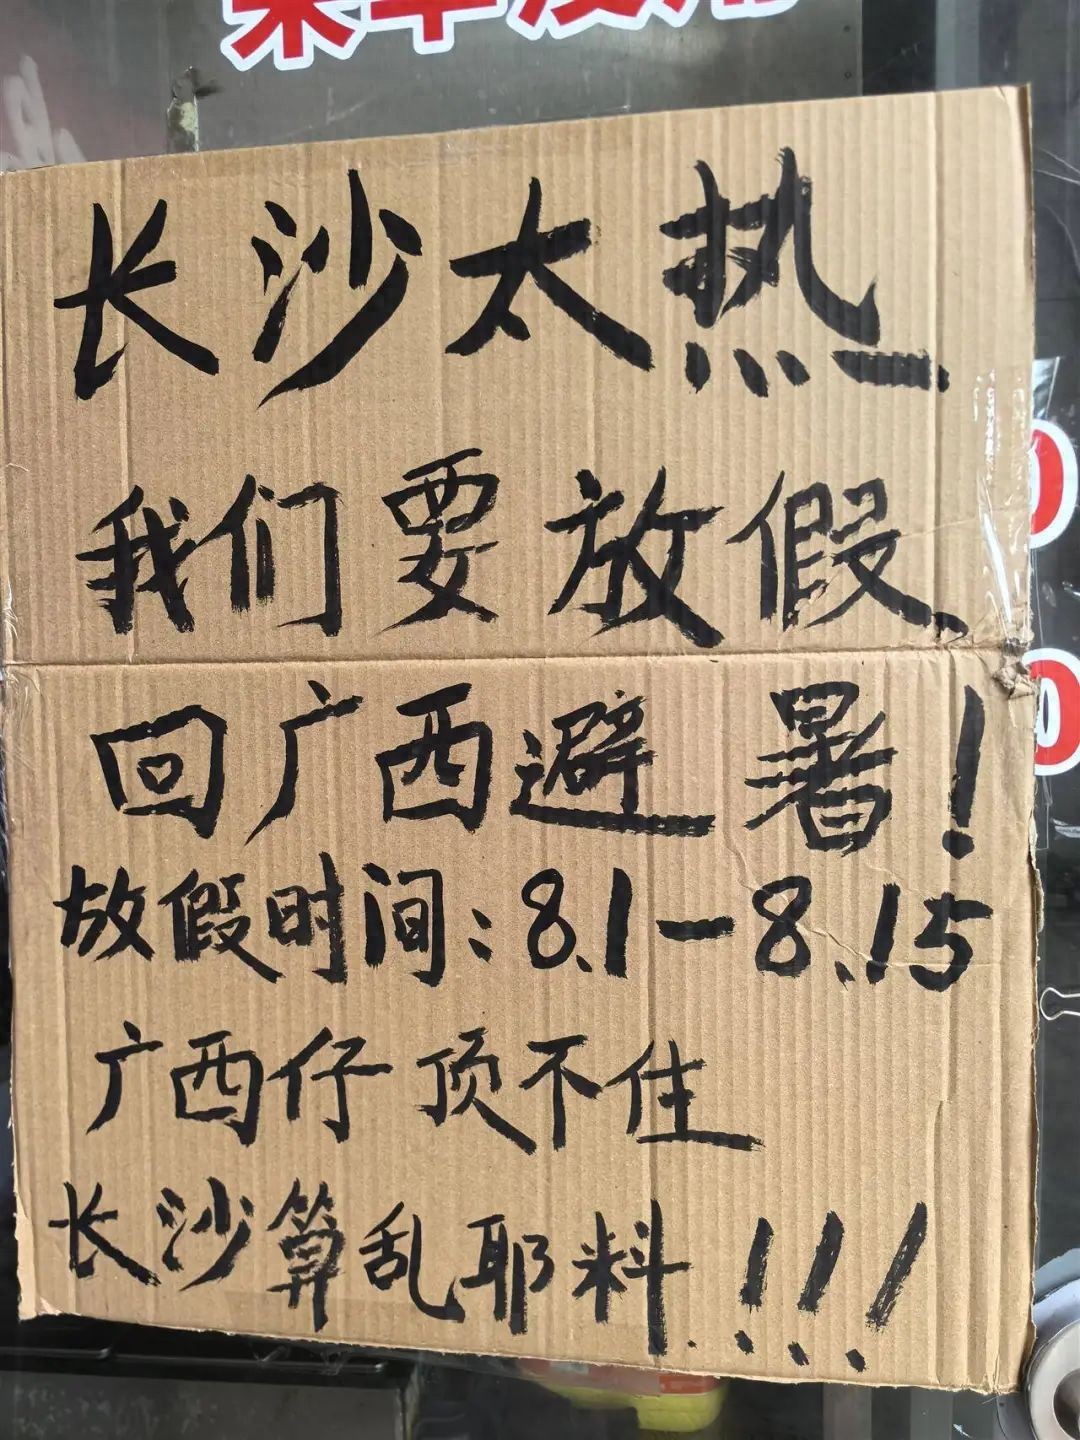 长沙太热
我们要放假
回广西避暑！
放假时间：8.1－8.15
广西仔顶不住
长沙算乱耶料！！！